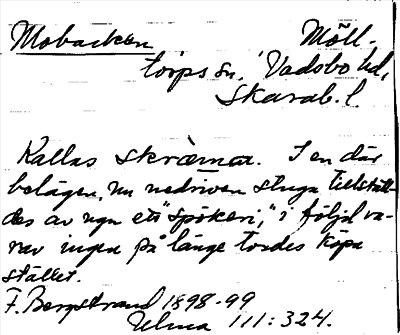 Mobacken Möll-
torps sn, Vadsbo hd,
Skarab. l.
Kallas Skrämma. I en där
belägen, nu nedriven stuga tillställ-
des av ngn ett "spökeri," i följd va-
rav ingen på länge tordes köpa
stället.
F. Bergstrand 1898-99
Ulma 111:324.